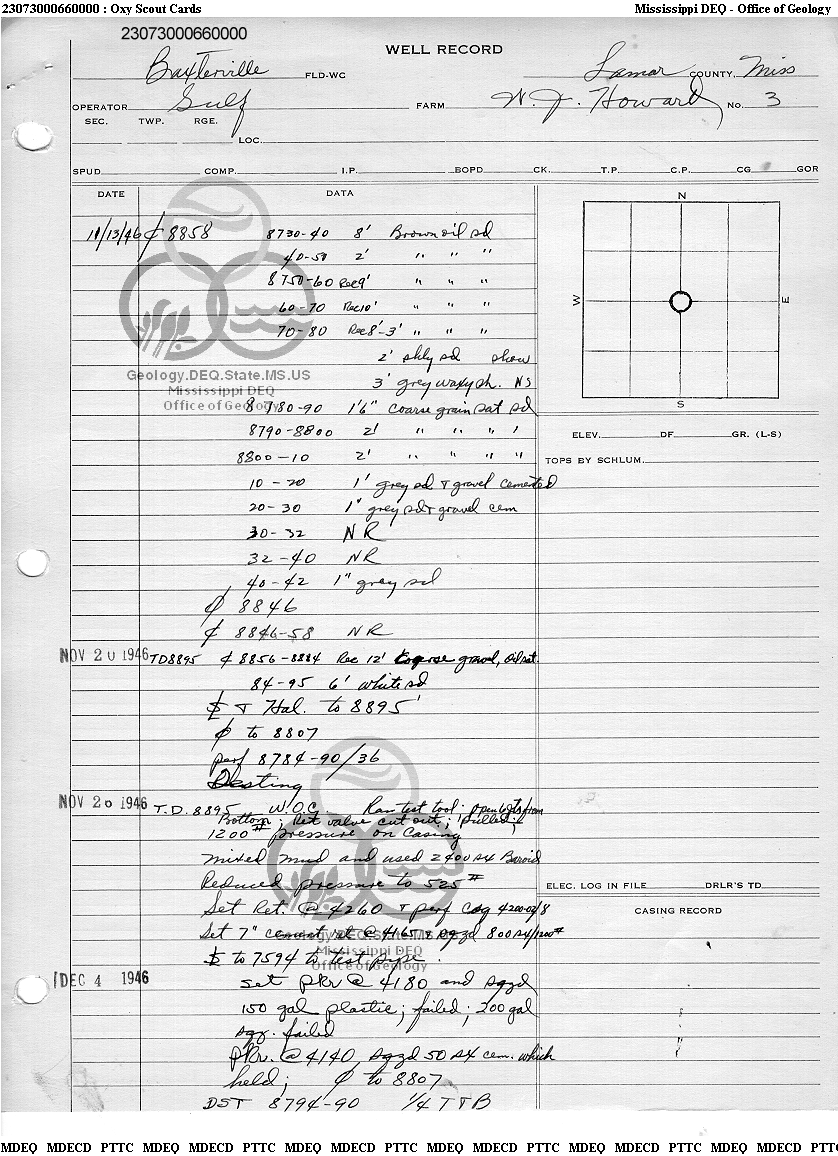 23073000660000 : Oxy Scout Cards Mississippi DEQ - Office of Geology
23073000660000
WELL RECORD
Baxterville FLD-WC Lamar COUNTY, Miss
OPERATOR Gulf FARM W. J. Howard No. 3
SEC. TWP. RGE.
LOC.
SPUD COMP. I.P. BOPD CK. T.P. C.P. CG GOR
DATE DATA
N
W E
S
11/13/46 ₵ 8858 8730-40 8' Brown oil sd
40-50 2' " " "
8750-60 Rec 9' " " "
60-70 Rec 10' " " "
70-80 Rec 8'-3' " " "
2' shly sd show
3' grey waxy sh. NS
Geology.DEQ.State.MS.US
Mississippi DEQ
Office of Geology
8780-90 1'6" coarse grain sat sd
8790-8800 2' " " " "
8800-10 2' " " " "
10-20 1' grey sd & gravel cemented
20-30 1" grey sd & gravel cem
30-32 NR
32-40 NR
40-42 1" grey sd
₵ 8846
₵ 8846-58 NR
ELEV. DF GR. (L-S)
TOPS BY SCHLUM.
NOV 20 1946 TD 8895 ₵ 8856-8884 Rec 12' Coarse gravel, oil sat.
84-95 6' white sd
& Hal. to 8895'
to 8807
perf 8784-90/36
Testing
NOV 20 1946 T.D. 8895 W.O.C. Ran test tool; open from
Bottom; Ret valve cut out; pulled;
1200# pressure on casing
mixed mud and used 2400 sx Baroid
Reduced pressure to 525#
Set Ret. @ 4260 & perf Csg 4200-02/8
Set 7" cement ret @ 4165 & sqzd 800 sx/1200#
Geology.DEQ.State.MS.US
Mississippi DEQ
Office of Geology
to 7594 to test pipe.
DEC 4 1946 set pkr @ 4180 and sqzd
150 gal plastic; failed; 200 gal
sqz. failed
pkr. @ 4140, sqzd 50 sx cem. which
held; to 8807
DST 8794-90 1/4 T & B
ELEC. LOG IN FILE DRLR'S TD
CASING RECORD
MDEQ MDECD PTTC MDEQ MDECD PTTC MDEQ MDECD PTTC MDEQ MDECD PTTC MDEQ MDECD PTTC MDEQ MDECD PTTC